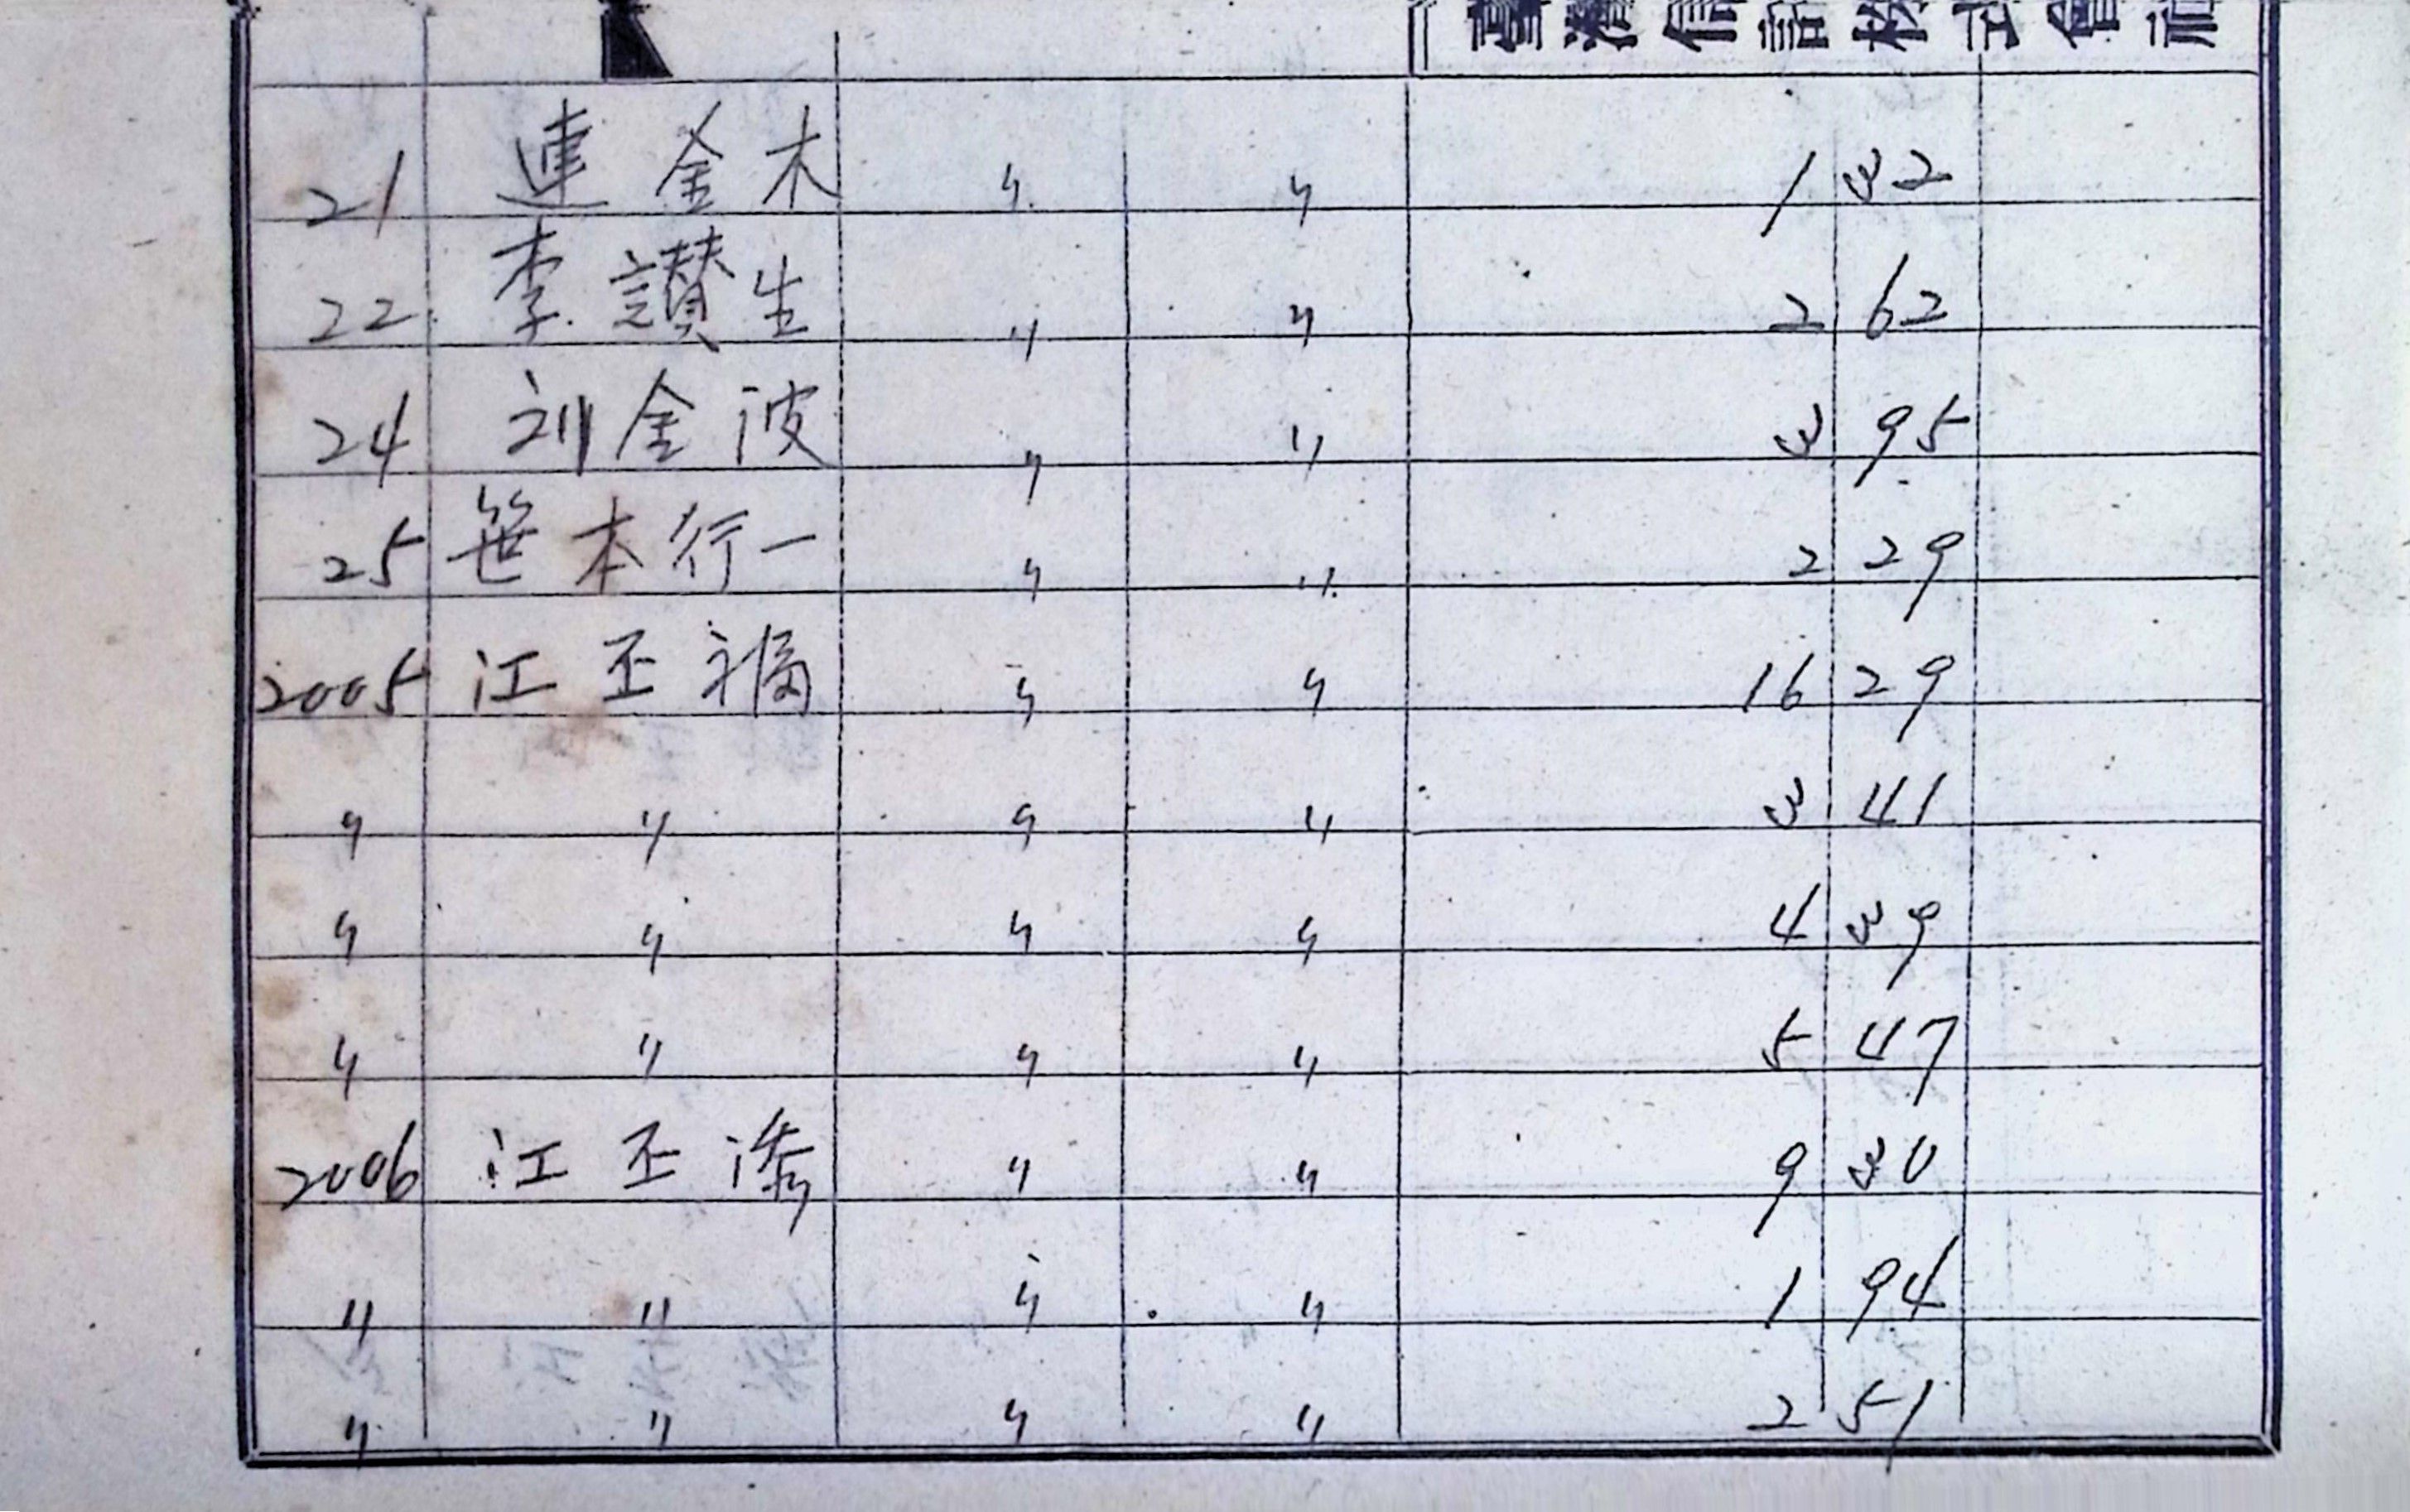 臺灣信託株式會社
21 連金木 〃 〃 1 32
22 李讚生 〃 〃 2 62
24 刘金波 〃 〃 3 95
25 笹本行一 〃 〃 2 29
2005 江丕福 〃 〃 16 29
〃 〃 〃 〃 3 41
〃 〃 〃 〃 4 39
〃 〃 〃 〃 5 47
2006 江丕 〃 〃 9 30
〃 〃 〃 〃 1 94
〃 〃 〃 〃 2 51